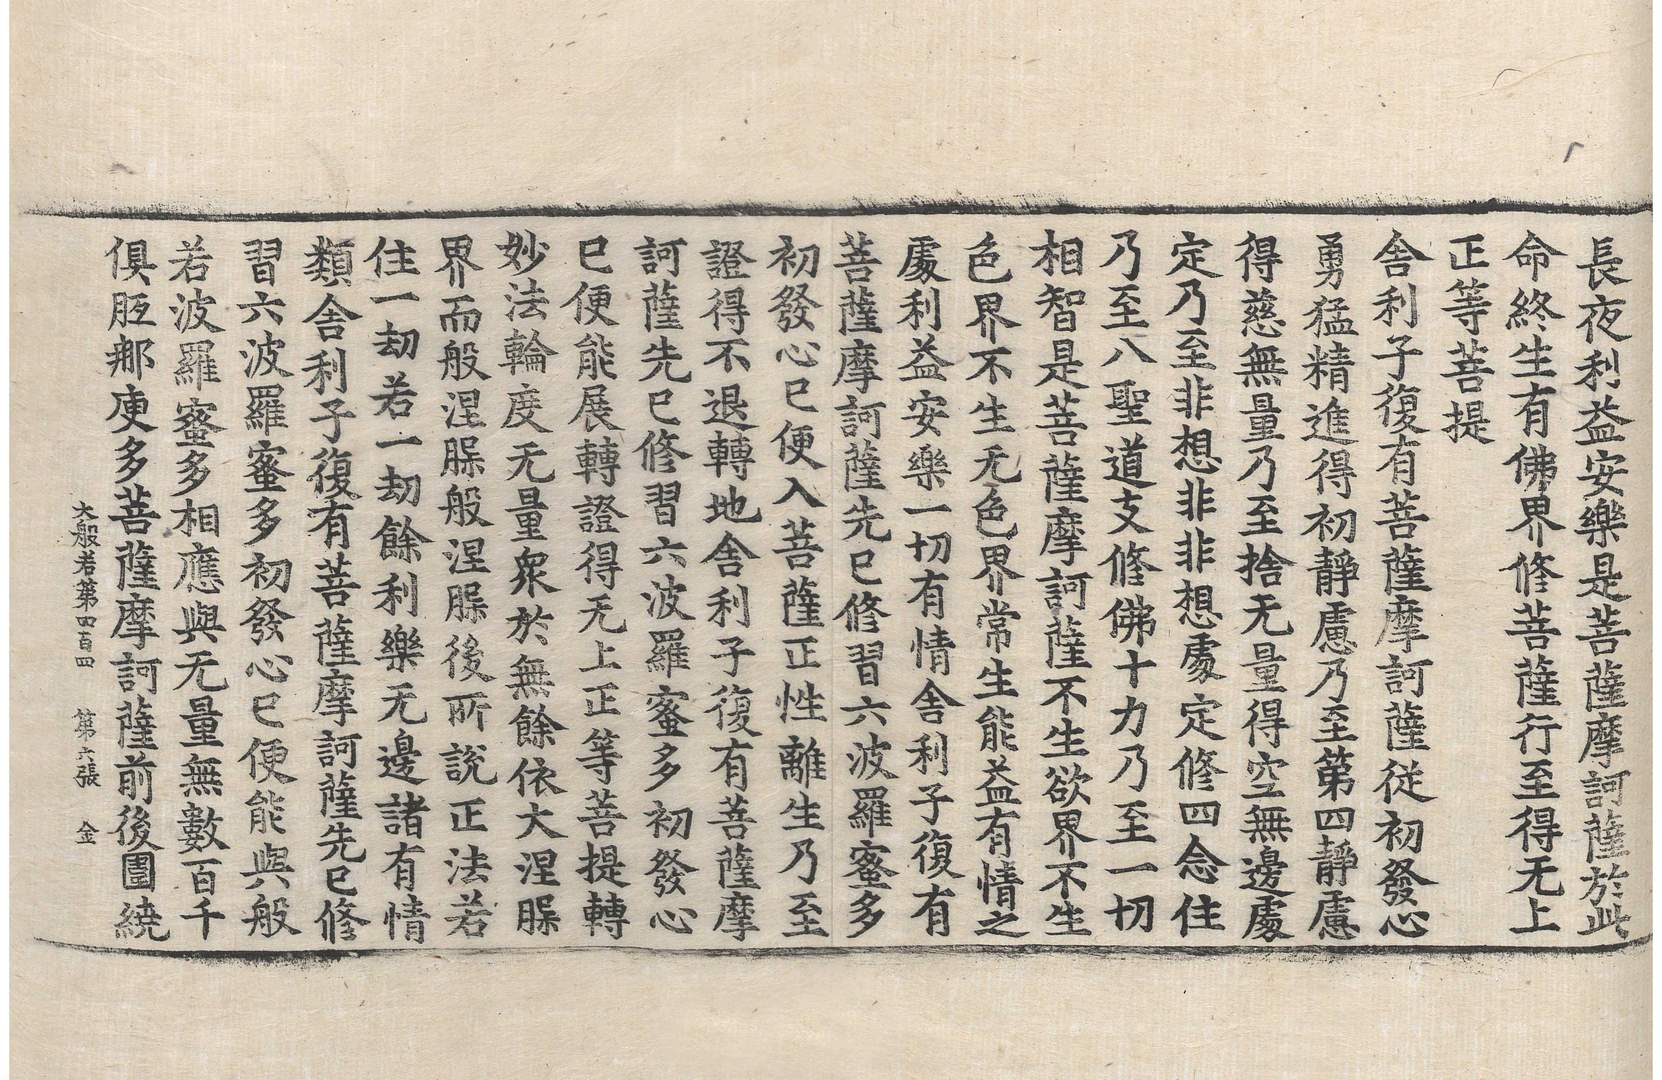 長夜利益安樂是菩薩摩訶薩於此
命終生有佛界修菩薩行至得无上
正等菩提
舍利子復有菩薩摩訶薩從初發心
勇猛精進得初靜慮乃至第四靜慮
得慈無量乃至捨无量得空無邊處
定乃至非想非非想處定修四念住
乃至八聖道支修佛十力乃至一切
相智是菩薩摩訶薩不生欲界不生
色界不生无色界常生能益有情之
處利益安樂一切有情舍利子復有
菩薩摩訶薩先已修習六波羅蜜多
初發心已便入菩薩正性離生乃至
證得不退轉地舍利子復有菩薩摩
訶薩先已修習六波羅蜜多初發心
已便能展轉證得无上正等菩提轉
妙法輪度无量衆於無餘依大涅槃
界而般涅槃般涅槃後所說正法若
住一劫若一劫餘利樂无邊諸有情
類舍利子復有菩薩摩訶薩先已修
習六波羅蜜多初發心已便能與般
若波羅蜜多相應與无量無數百千
俱胝那庾多菩薩摩訶薩前後圍繞
大般若第四百四 第六張 金